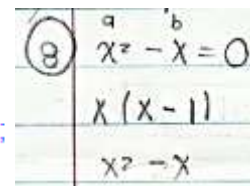 a b
8 x² - x = 0
x (x - 1)
x² - x